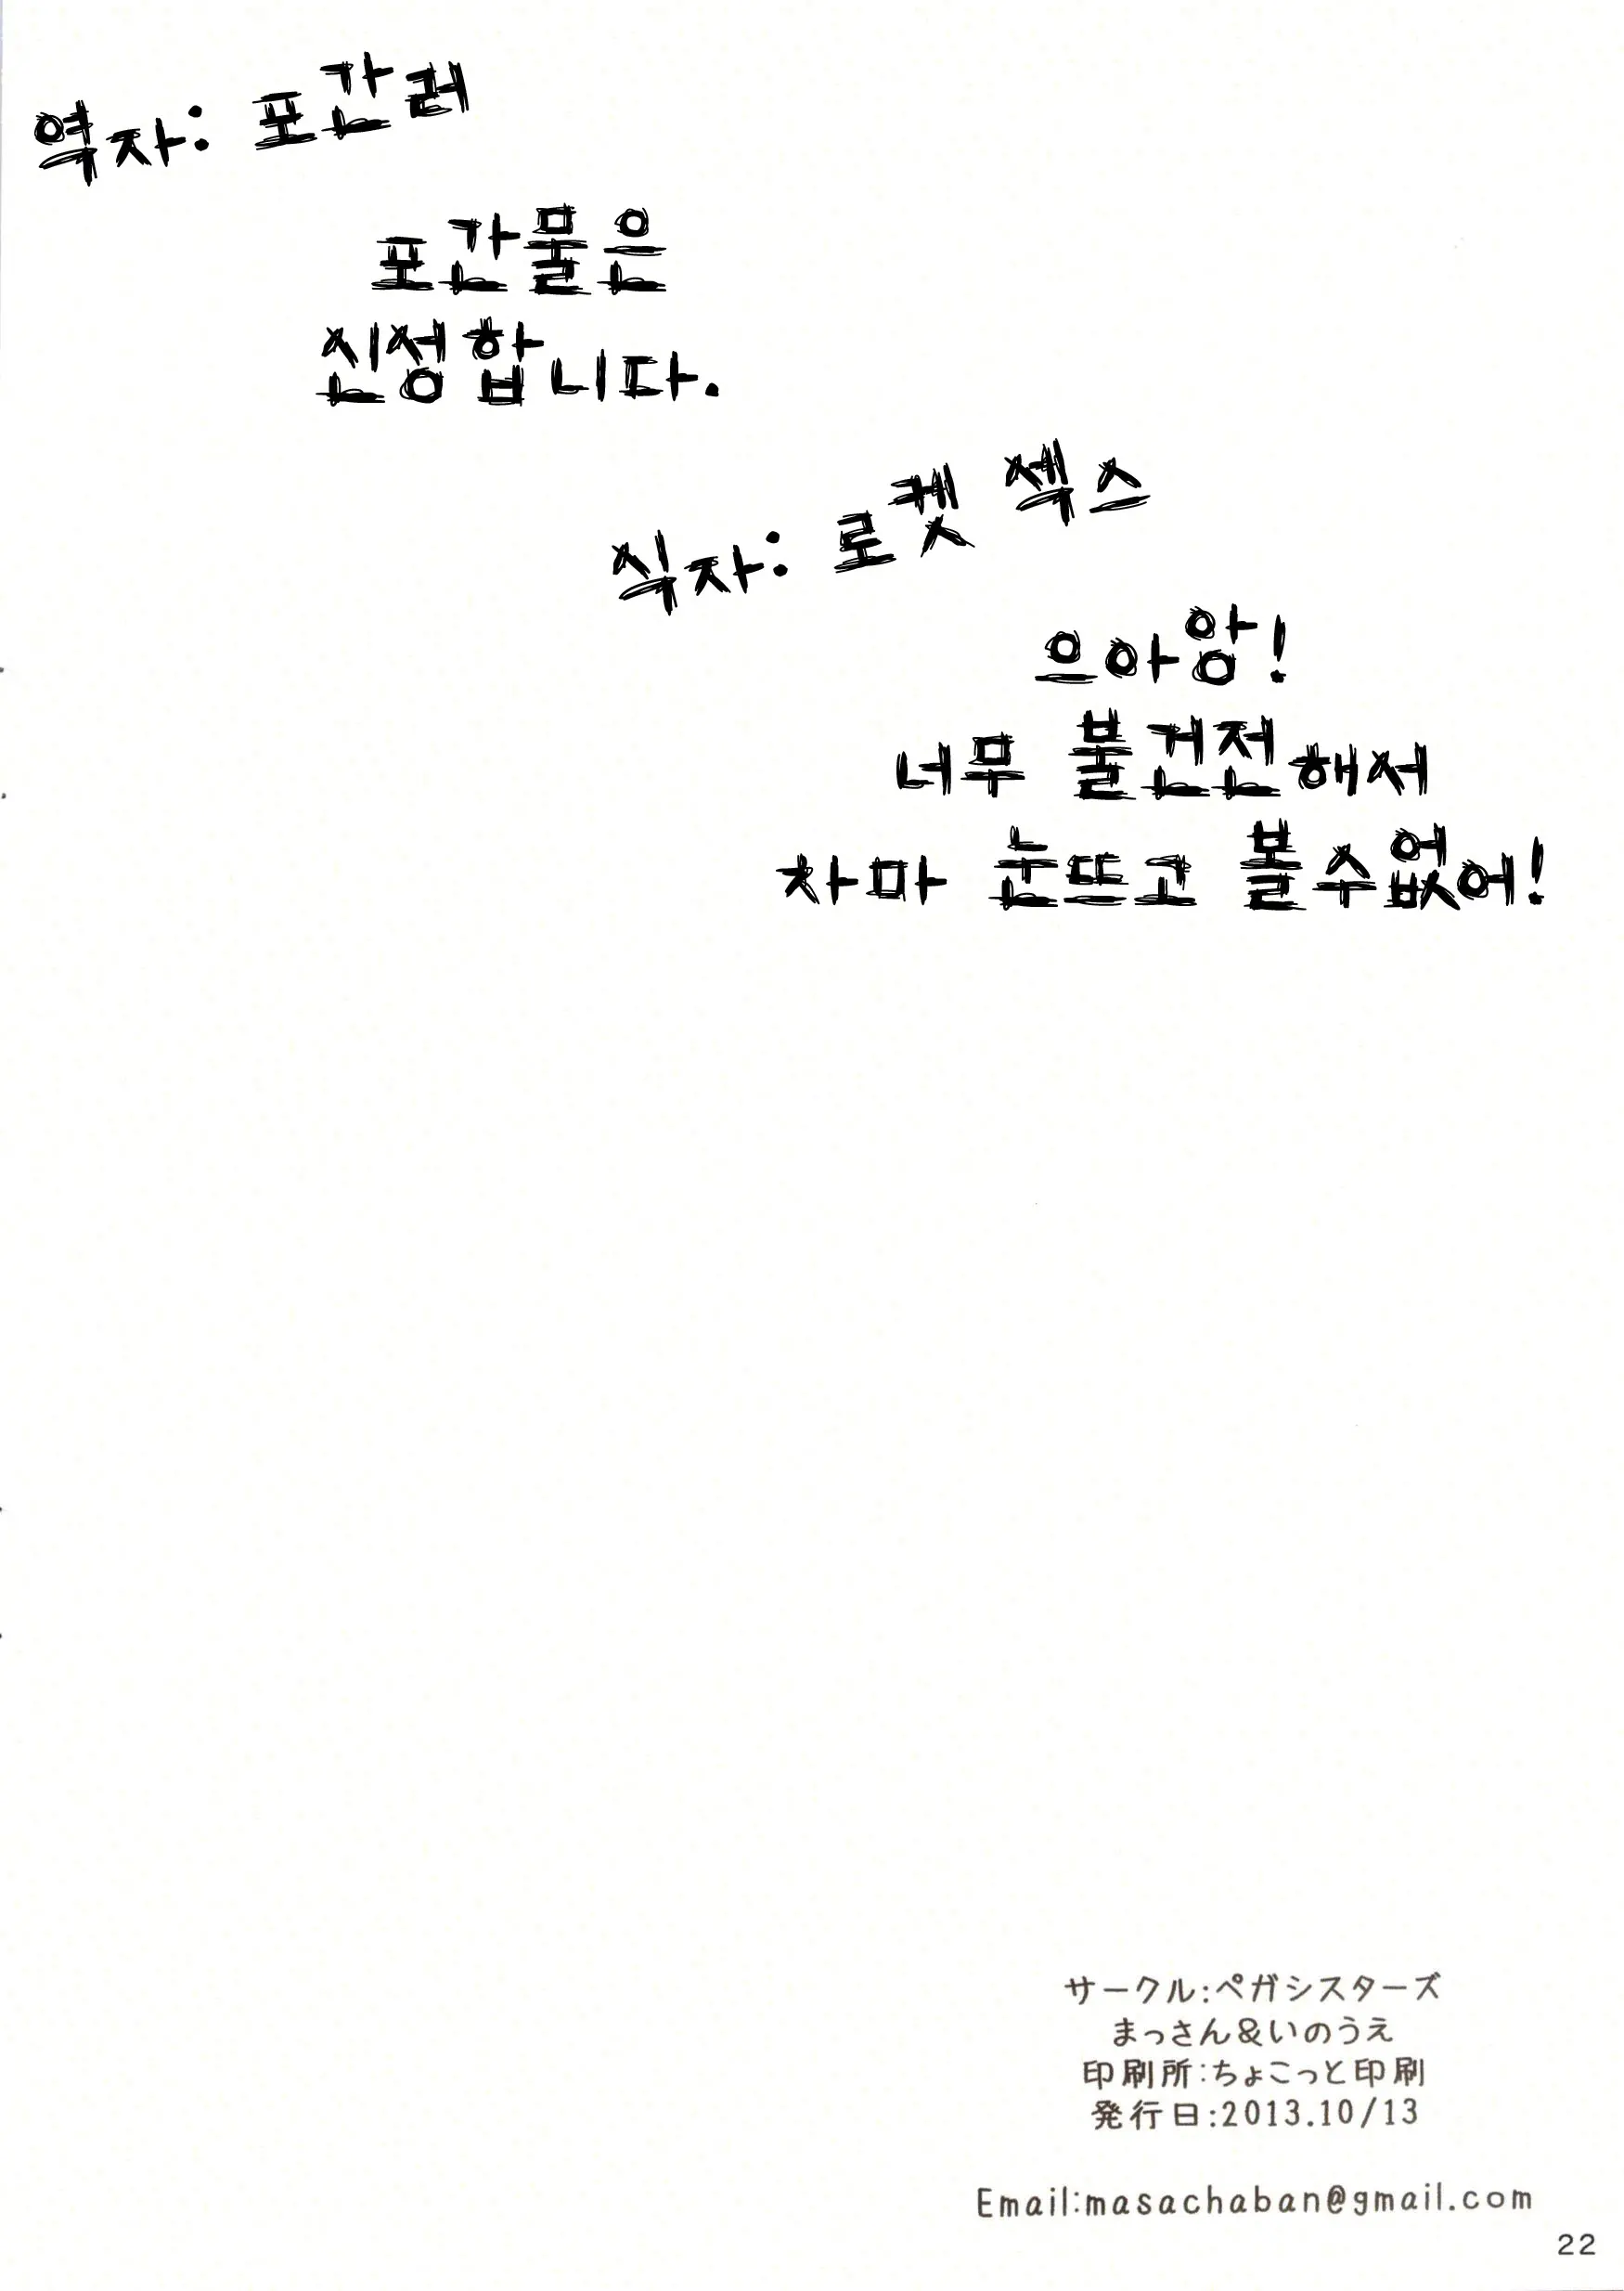 역자: 포간러
포간물은
신성합니다.
식자: 로켓 섹스
으아앙!
너무 불건전해서
차마 눈뜨고 볼수없어!
サークル:ペガシスターズ
まっさん&いのうえ
印刷所:ちょこっと印刷
発行日:2013.10/13
Email:masachaban@gmail.com
22